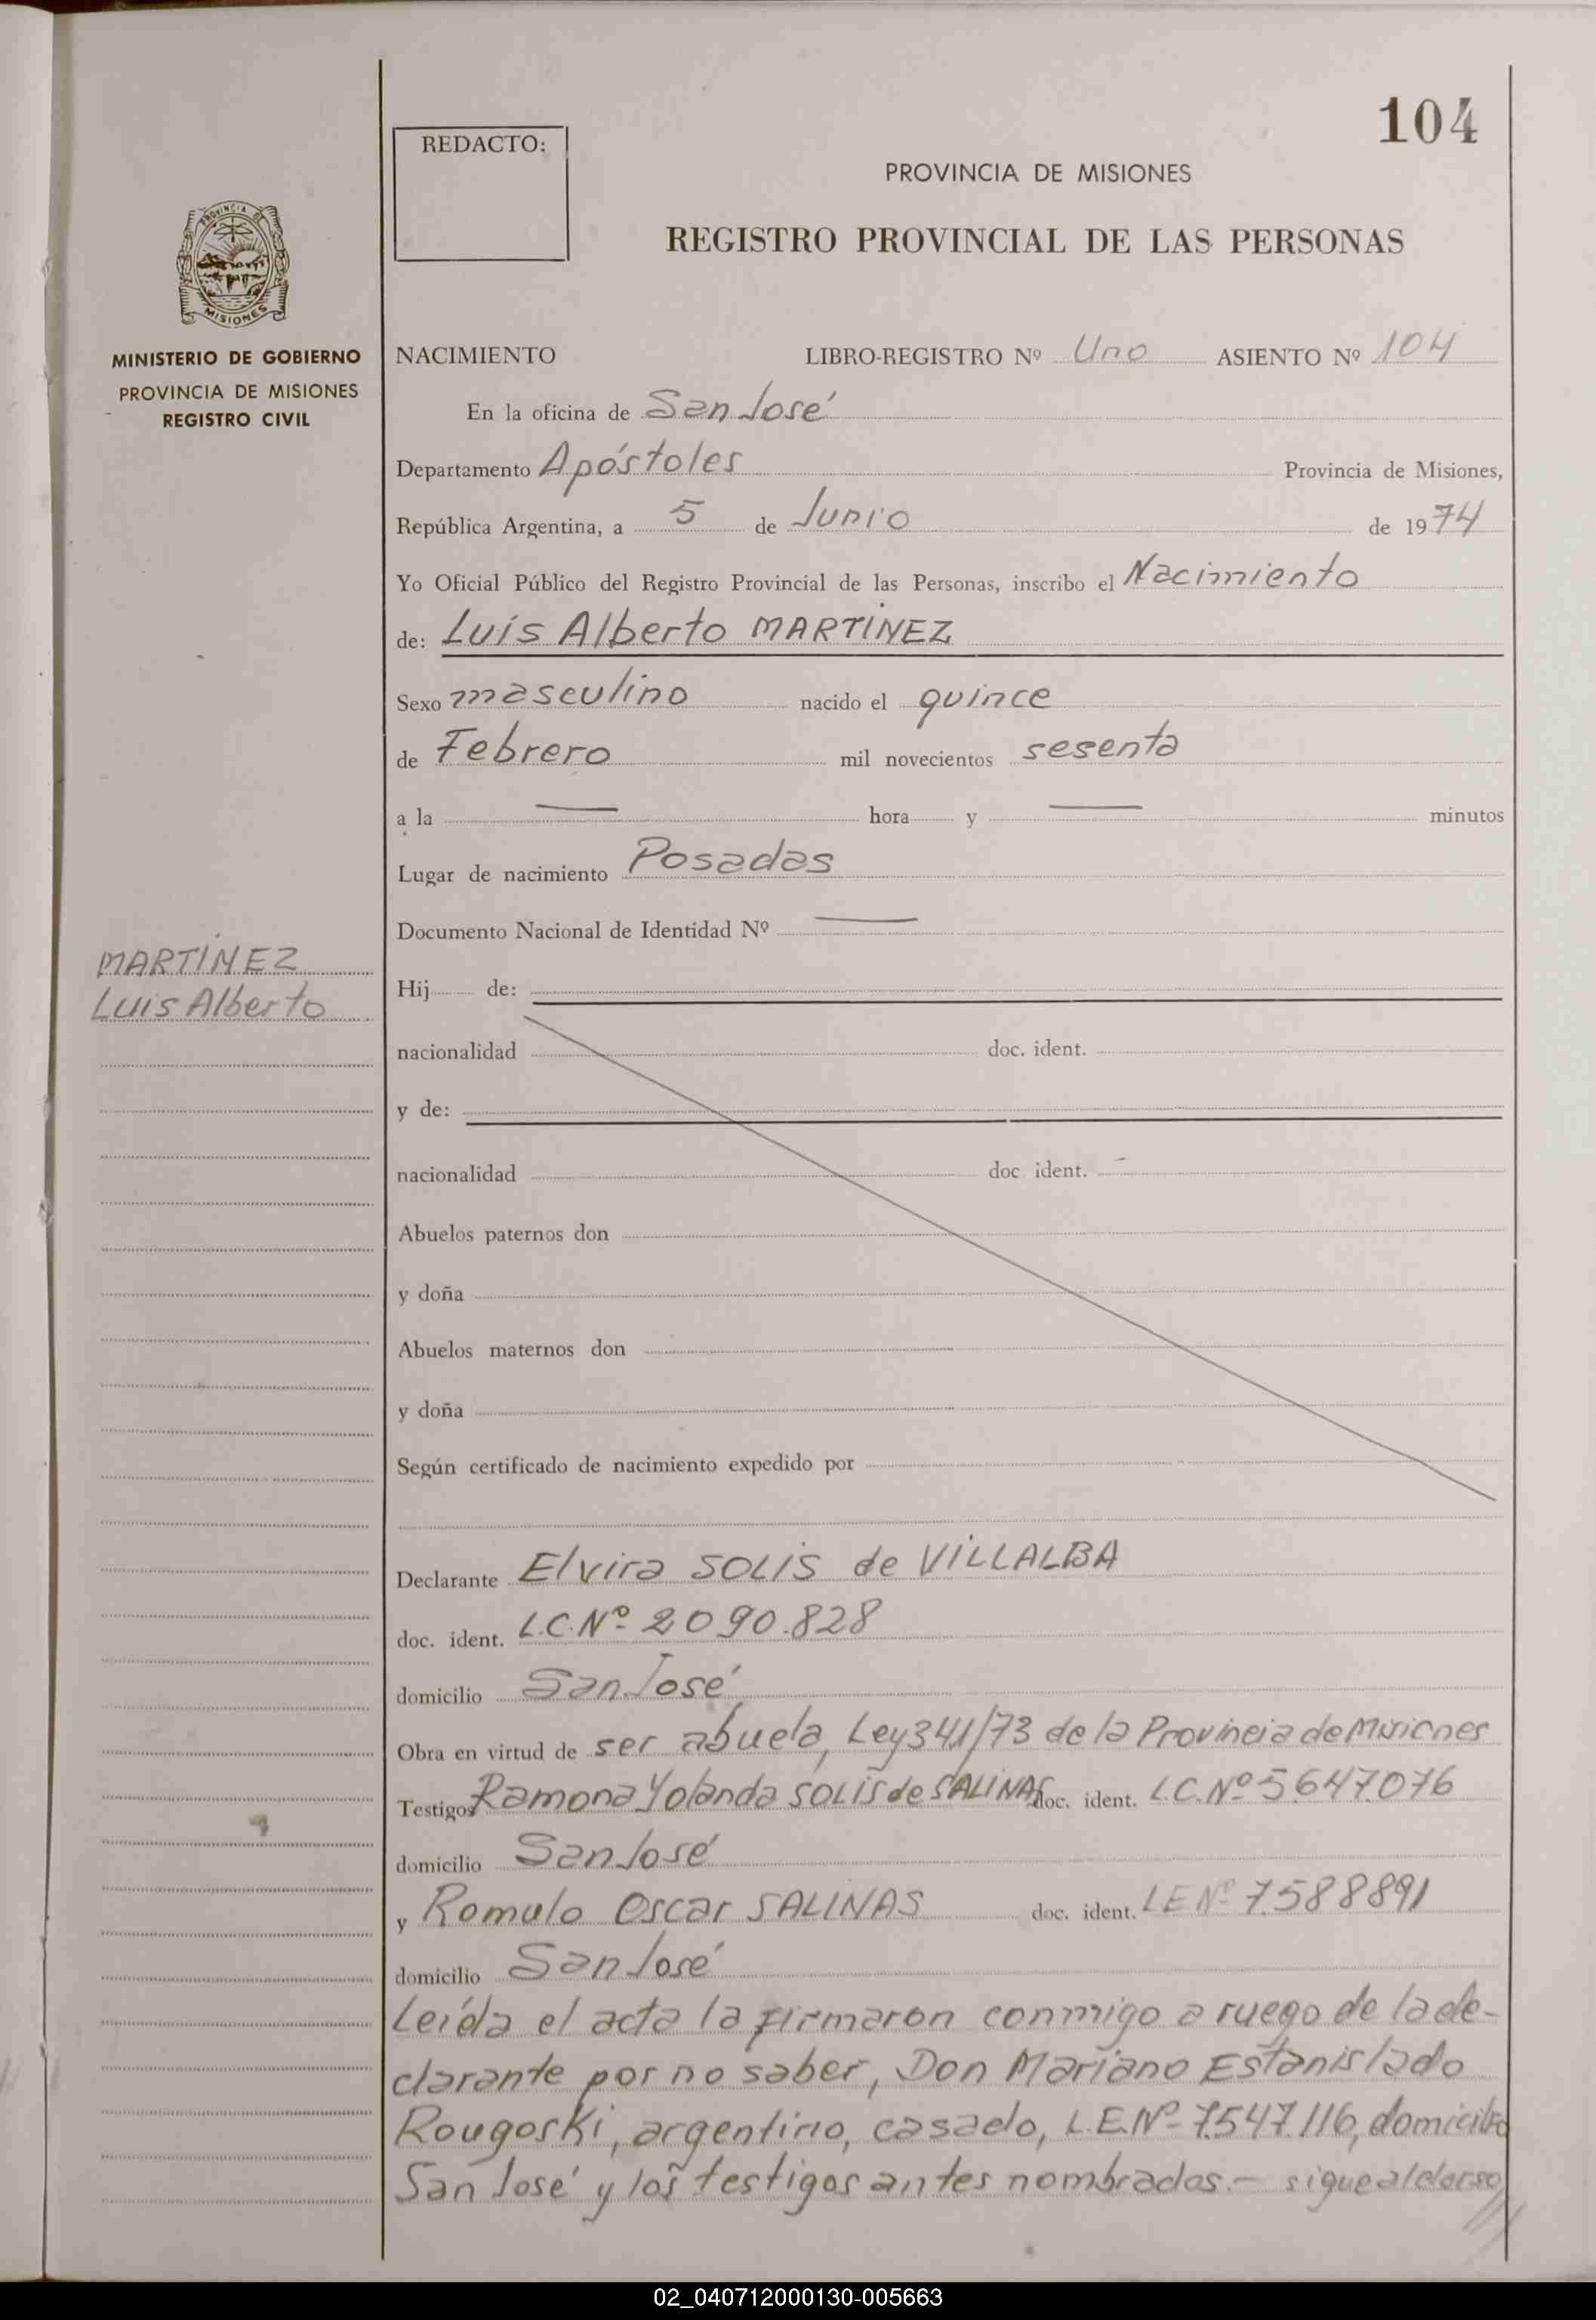 104
REDACTO:
PROVINCIA DE MISIONES
REGISTRO PROVINCIAL DE LAS PERSONAS
PROVINCIA DE
MISIONES
MINISTERIO DE GOBIERNO
PROVINCIA DE MISIONES
REGISTRO CIVIL
NACIMIENTO LIBRO-REGISTRO Nº Uno ASIENTO Nº 104
En la oficina de San José
Departamento Apóstoles Provincia de Misiones,
República Argentina, a 5 de Junio de 1974
Yo Oficial Público del Registro Provincial de las Personas, inscribo el Nacimiento
de: Luis Alberto MARTINEZ
Sexo masculino nacido el quince
de Febrero mil novecientos sesenta
a la — hora y — minutos
Lugar de nacimiento Posadas
Documento Nacional de Identidad Nº —
MARTINEZ
Luis Alberto
Hij de:
nacionalidad doc. ident.
y de:
nacionalidad doc ident.
Abuelos paternos don
y doña
Abuelos maternos don
y doña
Según certificado de nacimiento expedido por
Declarante Elvira SOLIS de VILLALBA
doc. ident. L.C.Nº 2090.828
domicilio San José
Obra en virtud de ser abuela, Ley 341/73 de la Provincia de Misiones
Testigos Ramona Yolanda SOLIS de SALINAS doc. ident. L.C.Nº 5.647.076
domicilio San José
y Romulo Oscar SALINAS doc. ident. LE Nº 7.588891
domicilio San José
Leída el acta la firmaron conmigo a ruego de la de-
clarante por no saber, Don Mariano Estanislado
Rougoski, argentino, casado, L.E.Nº 7.547.116, domicilio
San José y los testigos antes nombrados.- sigue al dorso
02_040712000130-005663